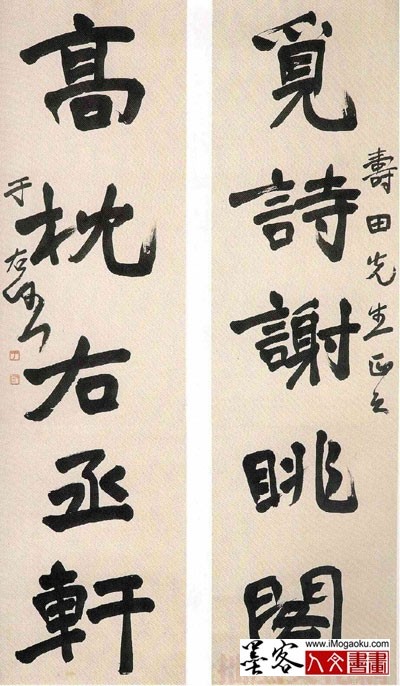 覓詩謝眺閣
壽田先生正之
高枕右丞軒
于右任
墨客
www.iMogaoku.com
人文書畫